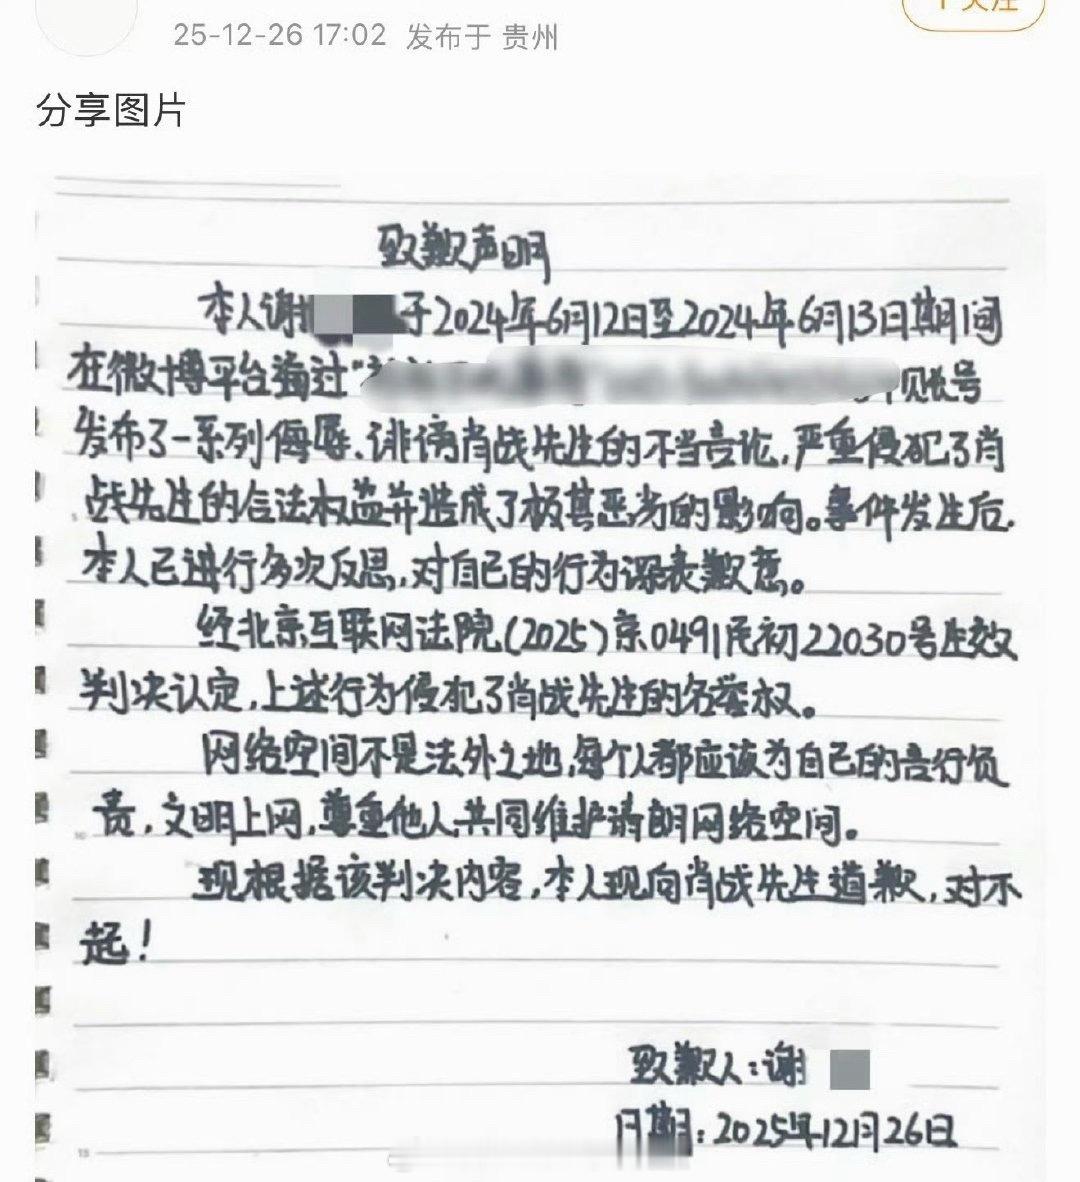 25-12-26 17:02 发布于 贵州
关注
分享图片
致歉声明
本人谢 于2024年6月12日至2024年6月13日期间
在微博平台通过“ 账号
发布了一系列侮辱、诽谤肖战先生的不当言论,严重侵犯了肖
战先生的合法权益并造成了极其恶劣的影响。事件发生后,
本人已进行多次反思,对自己的行为深表歉意。
经北京互联网法院(2025)京0491民初22030号生效
判决认定,上述行为侵犯了肖战先生的名誉权。
网络空间不是法外之地,每个人都应该为自己的言行负
责,文明上网,尊重他人共同维护清朗网络空间。
现根据该判决内容,本人现向肖战先生道歉,对不
起!
致歉人:谢
日期:2025年12月26日